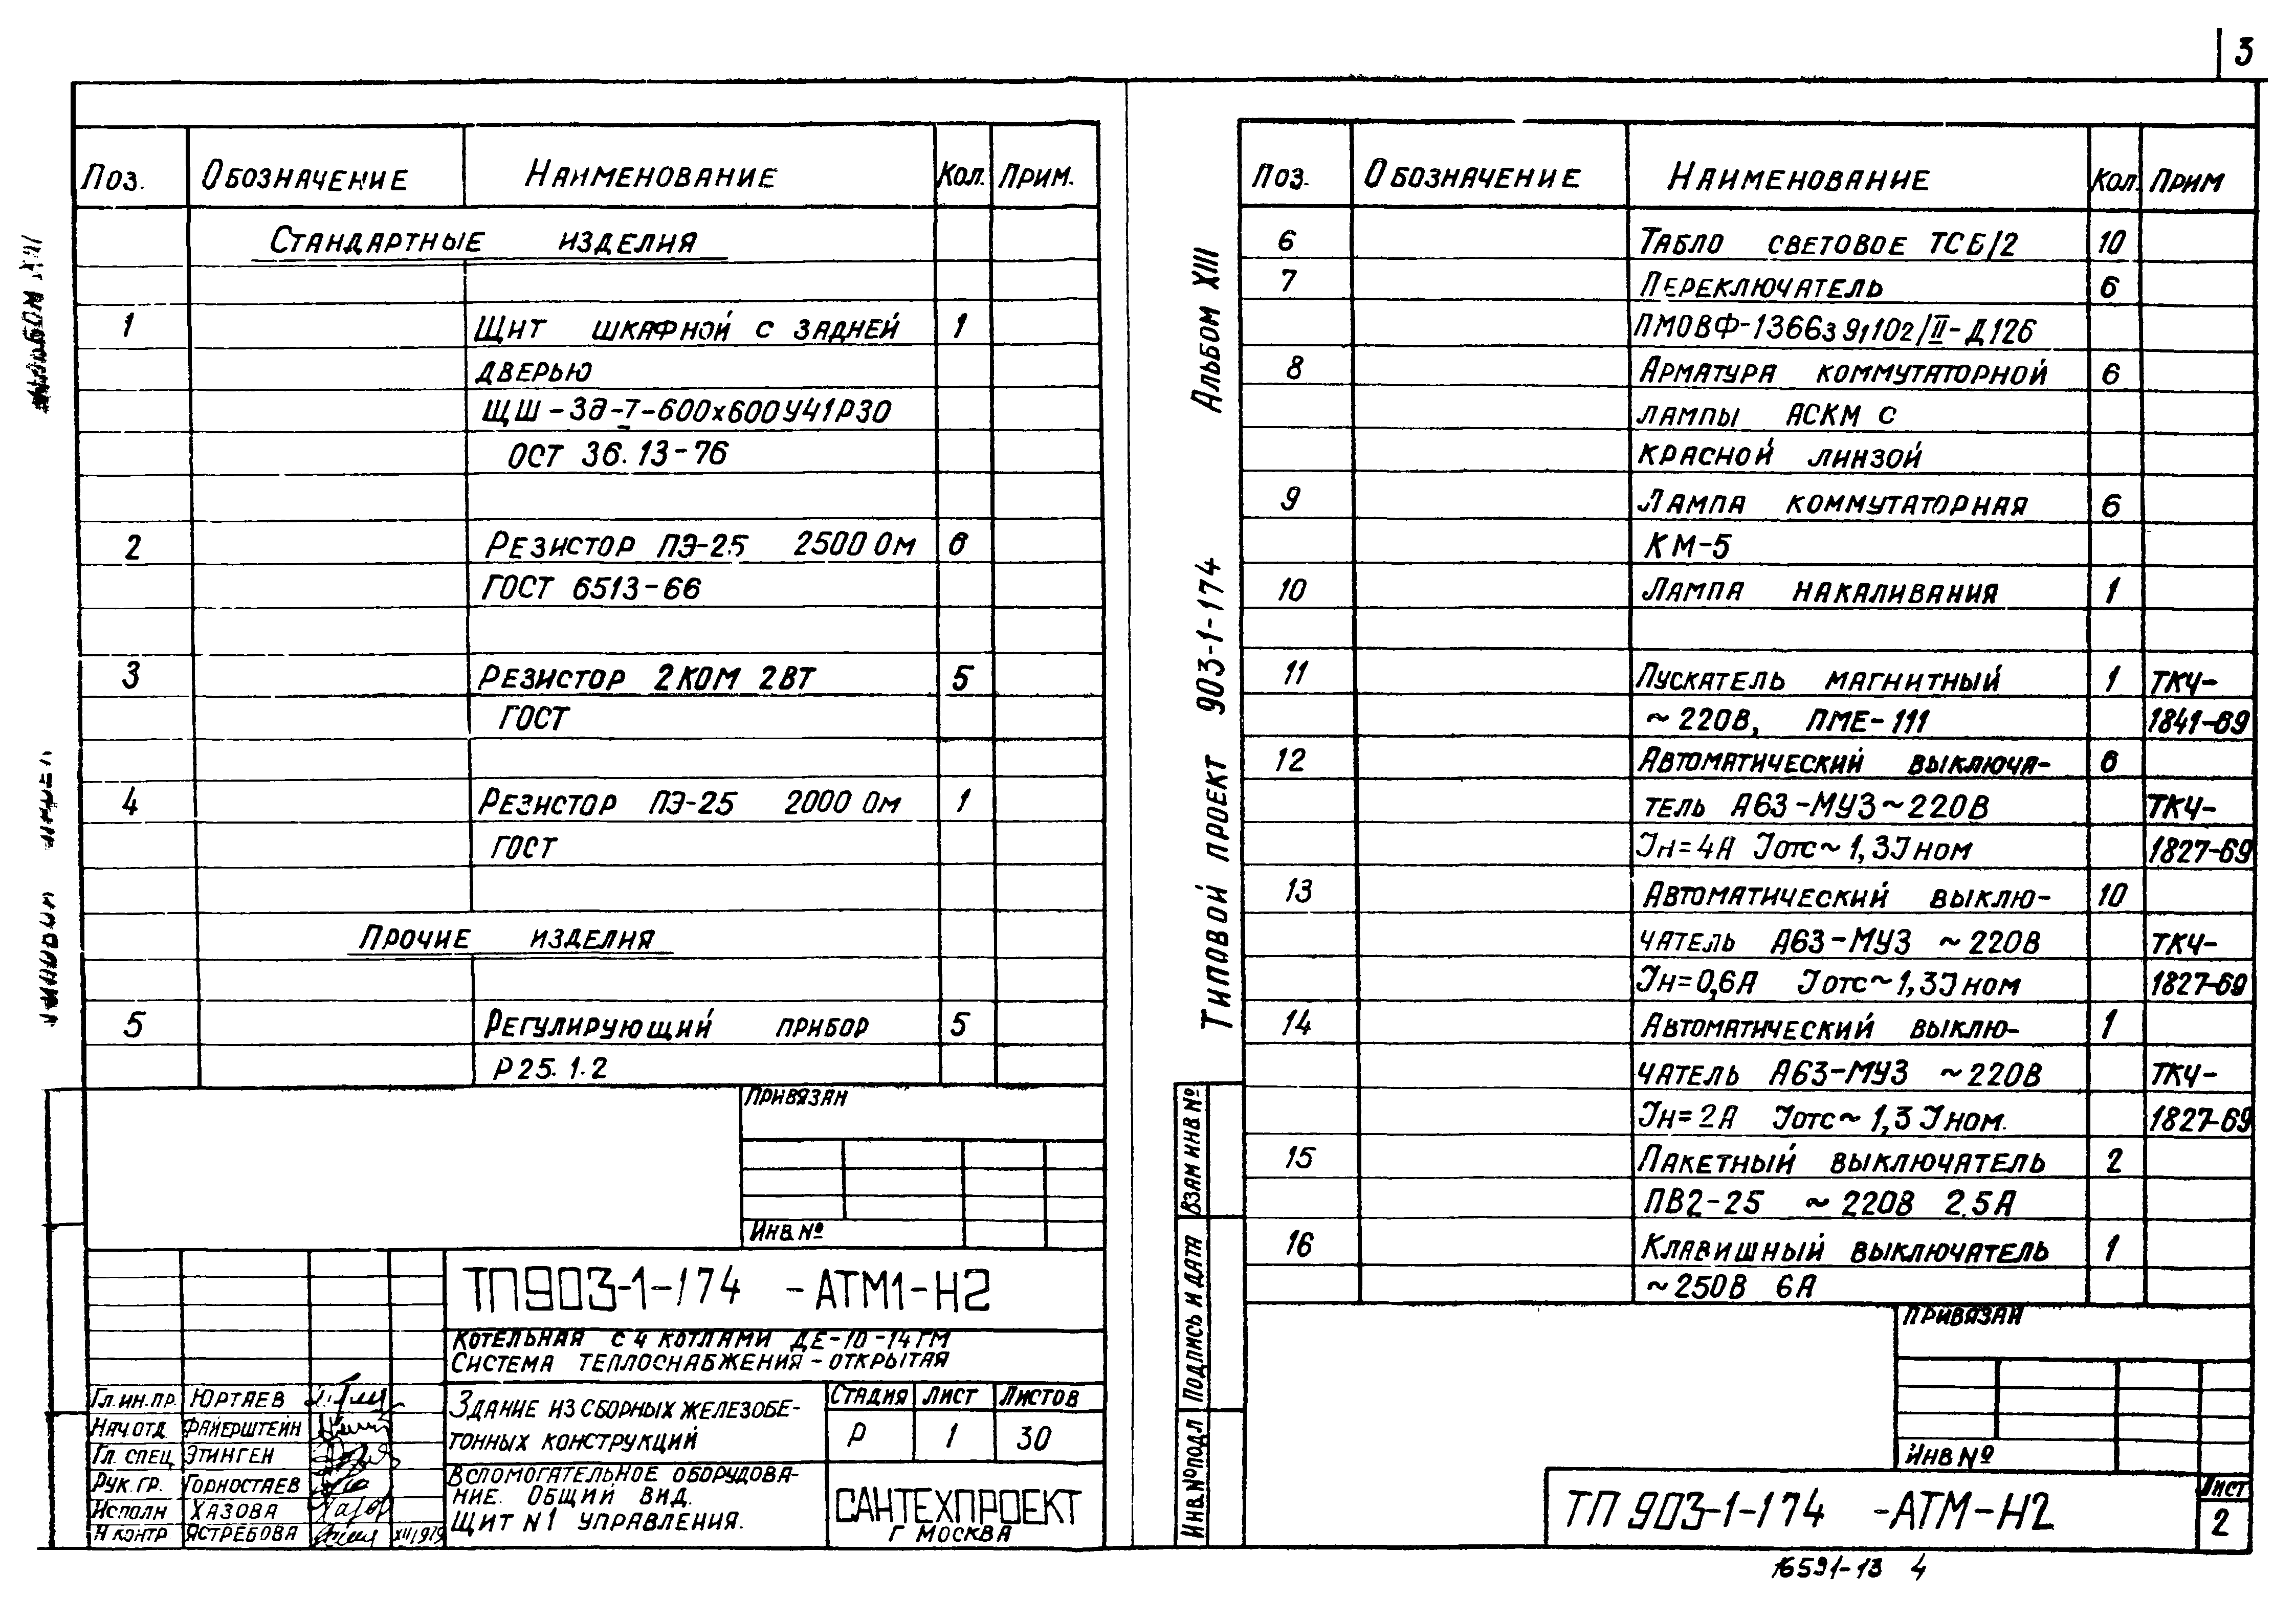 3
Поз. Обозначение Наименование Кол. Прим.
Стандартные изделия
1 Щит шкафной с задней 1
дверью
ЩШ-3д-I-600х600У41Р30
ОСТ 36.13-76
2 Резистор ПЭ-25 2500 Ом 6
ГОСТ 6513-66
3 Резистор 2КОМ 2ВТ 5
ГОСТ
4 Резистор ПЭ-25 2000 Ом 1
ГОСТ
Прочие изделия
5 Регулирующий прибор 5
Р25.1.2
Привязан
Инв.№
ТП903-1-174 -АТМ1-Н2
Котельная с 4 котлами ДЕ-10-14ГМ
Система теплоснабжения-открытая
Гл.ин.пр. Юртаев
Нач отд Файерштейн
Гл. спец Этинген
Рук. гр. Горностаев
Исполн Хазова
Н контр Ястребова XII 1979
Здание из сборных железобе-
тонных конструкций
Стадия Лист Листов
Р 1 30
Вспомогательное оборудова-
ние. Общий вид.
Щит N1 управления.
САНТЕХПРОЕКТ
г Москва
Альбом XIII
Типовой проект 903-1-174
Взам инв №
Подпись и дата
Инв.№подл
Поз. Обозначение Наименование Кол. Прим
6 Табло световое ТСБ/2 10
7 Переключатель 6
ПМОВФ-1366з 9,1102/II-Д126
8 Арматура коммутаторной 6
лампы АСКМ с
красной линзой
9 Лампа коммутаторная 6
КМ-5
10 Лампа накаливания 1
11 Пускатель магнитный 1 ТКЧ-
~220В, ПМЕ-111 1841-69
12 Автоматический выключа- 6
тель А63-МУ3~220В ТКЧ-
Iн=4А Iотс~1,3Iном 1827-69
13 Автоматический выклю- 10
чатель А63-МУ3 ~220В ТКЧ-
Iн=0,6А Iотс~1,3Iном 1827-69
14 Автоматический выклю- 1
чатель А63-МУ3 ~220В ТКЧ-
Iн=2А Iотс~1,3Iном. 1827-69
15 Пакетный выключатель 2
ПВ2-25 ~220В 2.5А
16 Клавишный выключатель 1
~250В 6А
Привязан
Инв №
ТП 903-1-174 -АТМ-Н2
Лист
2
16591-13 4